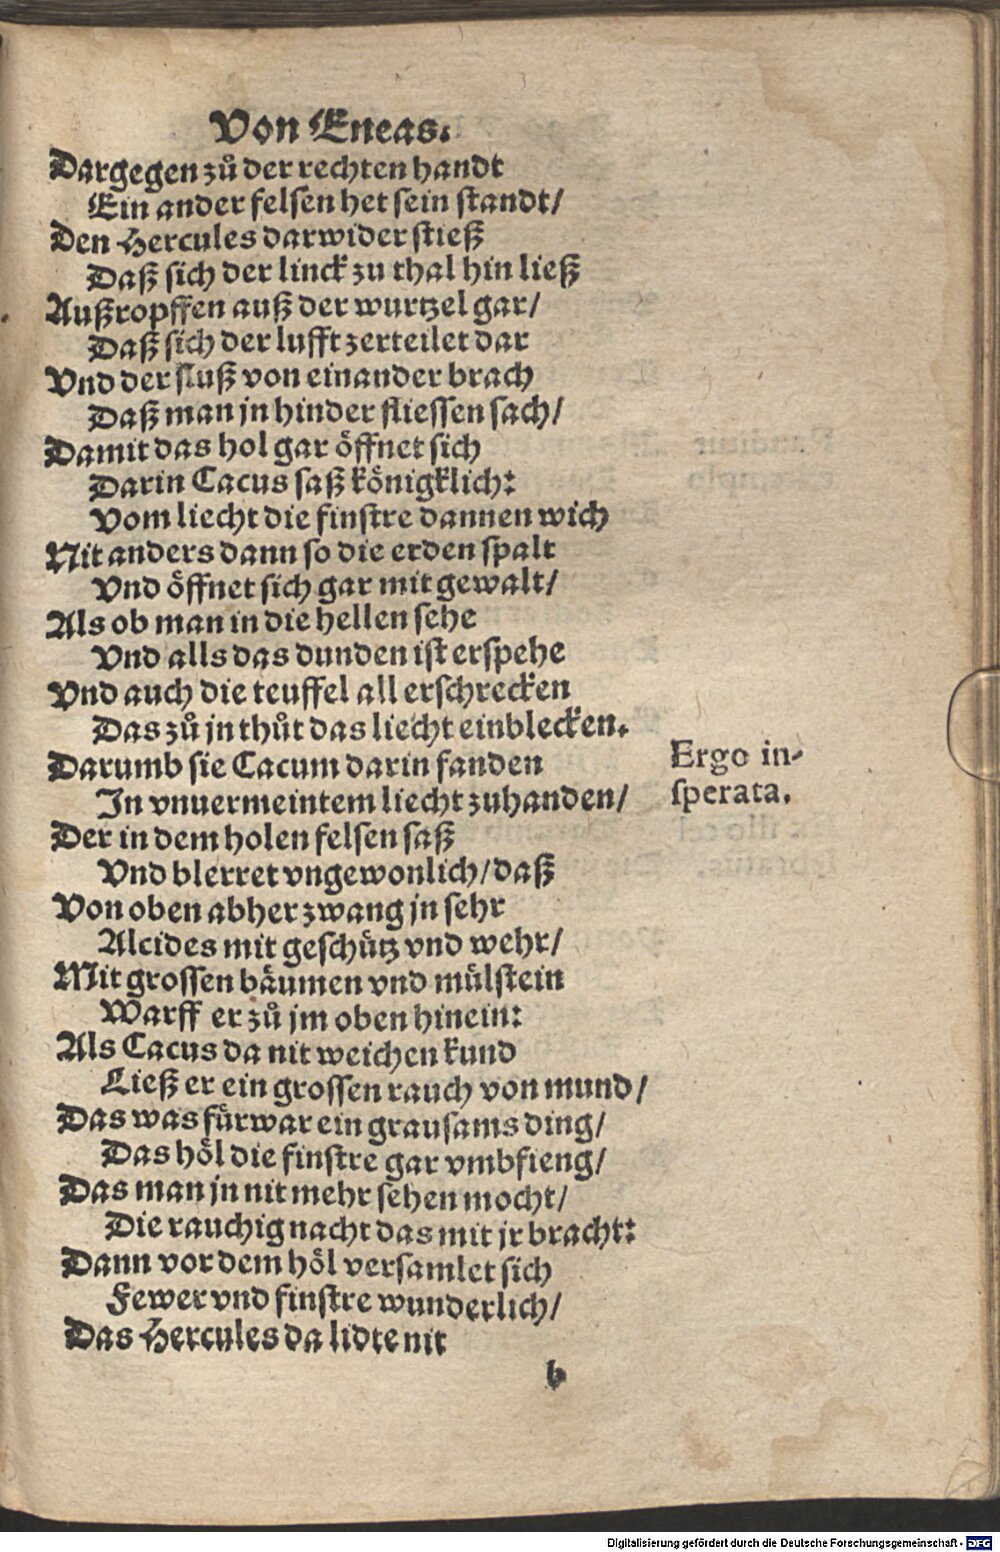 Von Eneas.
Dargegen zuͦ der rechten handt
Ein ander felsen het sein standt/
Den Hercules darwider stieß
Daß sich der linck zu thal hin ließ
Außropffen auß der wurtzel gar/
Daß sich der lufft zerteilet dar
Vnd der fluß von einander brach
Daß man jn hinder fliessen sach/
Damit das hol gar öffnet sich
Darin Cacus saß königklich:
Vom liecht die finstre dannen wich
Nit anders dann so die erden spalt
Vnd öffnet sich gar mit gewalt/
Als ob man in die hellen sehe
Vnd alls das dunden ist erspehe
Vnd auch die teuffel all erschrecken
Das zuͦ jn thuͦt das liecht einblecken.
Darumb sie Cacum darin fanden
Ergo in-
In vnuermeintem liecht zuhanden/
sperata.
Der in dem holen felsen saß
Vnd blerret vngewonlich/ daß
Von oben abher zwang jn sehr
Alcides mit geschütz vnd wehr/
Mit grossen bäumen vnd mülstein
Warff er zuͦ jm oben hinein:
Als Cacus da nit weichen kund
Ließ er ein grossen rauch von mund/
Das was fürwar ein grausams ding/
Das höl die finstre gar vmbfieng/
Das man jn nit mehr sehen mocht/
Die rauchig nacht das mit jr bracht:
Dann vor dem höl versamlet sich
Fewer vnd finstre wunderlich/
Das Hercules da lidte nit
b
Digitalisierung gefördert durch die Deutsche Forschungsgemeinschaft - DFG